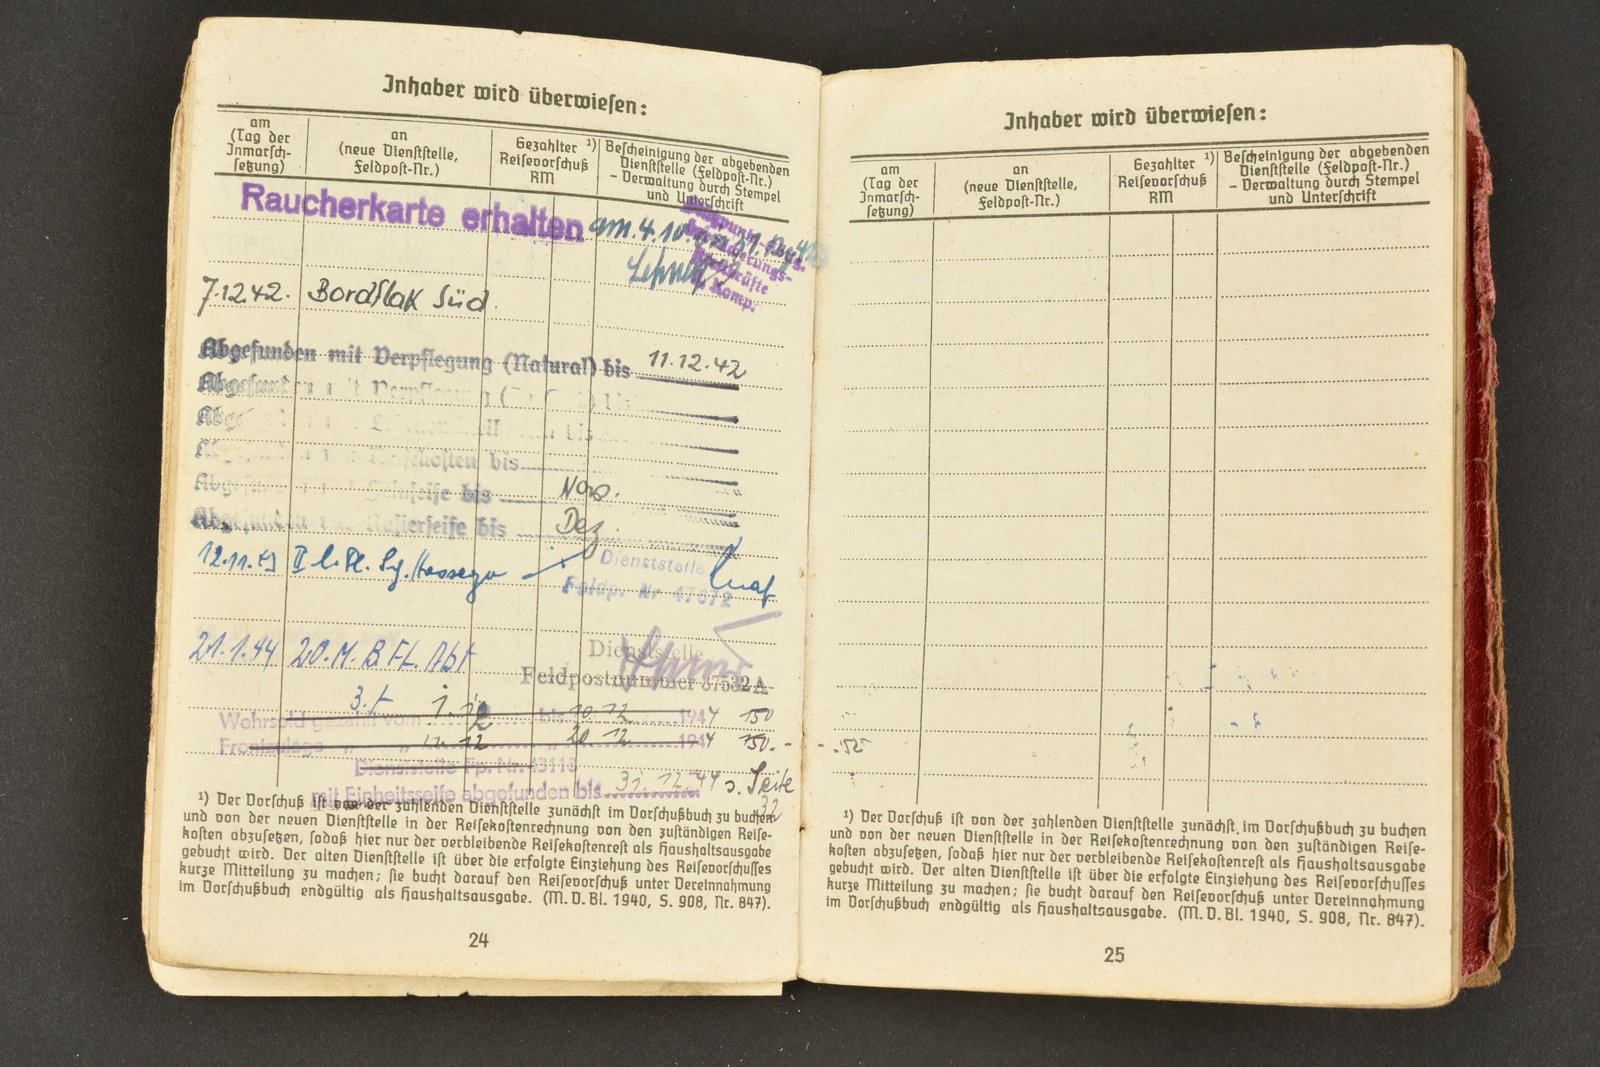 Inhaber wird überwiesen:
am
(Tag der
Inmarsch-
setzung)
an
(neue Dienststelle,
Feldpost-Nr.)
Gezahlter ¹)
Reisevorschuß
RM
Bescheinigung der abgebenden
Dienststelle (Feldpost-Nr.)
– Verwaltung durch Stempel
und Unterschrift
Raucherkarte erhalten am 4.10.
7.12.42. Bordflak Süd.
Abgefunden mit Verpflegung (Natural) bis 11.12.42
Abgefunden mit Verpflegung
bis
bis
bis Nov.
Abgefunden Rasierseife bis Dez.
12.11.43 II
Dienststelle
Feldp. Nr 47672
21.1.44 20. M. B. Fl. Abt
Dienststelle
Feldpostnummer 37532 A
Wehrsold gezahlt vom 1.12 bis 10.12 1944 150
Frontzulage " " 11.12 " 20.12 1944 150.-
Dienststelle Fp. Nr. 43118
mit Einheitsseife abgefunden bis 31.12.44 s. Seite
32
¹) Der Vorschuß ist von der zahlenden Dienststelle zunächst im Vorschußbuch zu buchen
und von der neuen Dienststelle in der Reisekostenrechnung von den zuständigen Reise-
kosten abzusetzen, sodaß hier nur der verbleibende Reisekostenrest als Haushaltsausgabe
gebucht wird. Der alten Dienststelle ist über die erfolgte Einziehung des Reisevorschusses
kurze Mitteilung zu machen; sie bucht darauf den Reisevorschuß unter Vereinnahmung
im Vorschußbuch endgültig als Haushaltsausgabe. (M. V. Bl. 1940, S. 908, Nr. 847).
24
Inhaber wird überwiesen:
am
(Tag der
Inmarsch-
setzung)
an
(neue Dienststelle,
Feldpost-Nr.)
Gezahlter ¹)
Reisevorschuß
RM
Bescheinigung der abgebenden
Dienststelle (Feldpost-Nr.)
– Verwaltung durch Stempel
und Unterschrift
¹) Der Vorschuß ist von der zahlenden Dienststelle zunächst im Vorschußbuch zu buchen
und von der neuen Dienststelle in der Reisekostenrechnung von den zuständigen Reise-
kosten abzusetzen, sodaß hier nur der verbleibende Reisekostenrest als Haushaltsausgabe
gebucht wird. Der alten Dienststelle ist über die erfolgte Einziehung des Reisevorschusses
kurze Mitteilung zu machen; sie bucht darauf den Reisevorschuß unter Vereinnahmung
im Vorschußbuch endgültig als Haushaltsausgabe. (M. V. Bl. 1940, S. 908, Nr. 847).
25